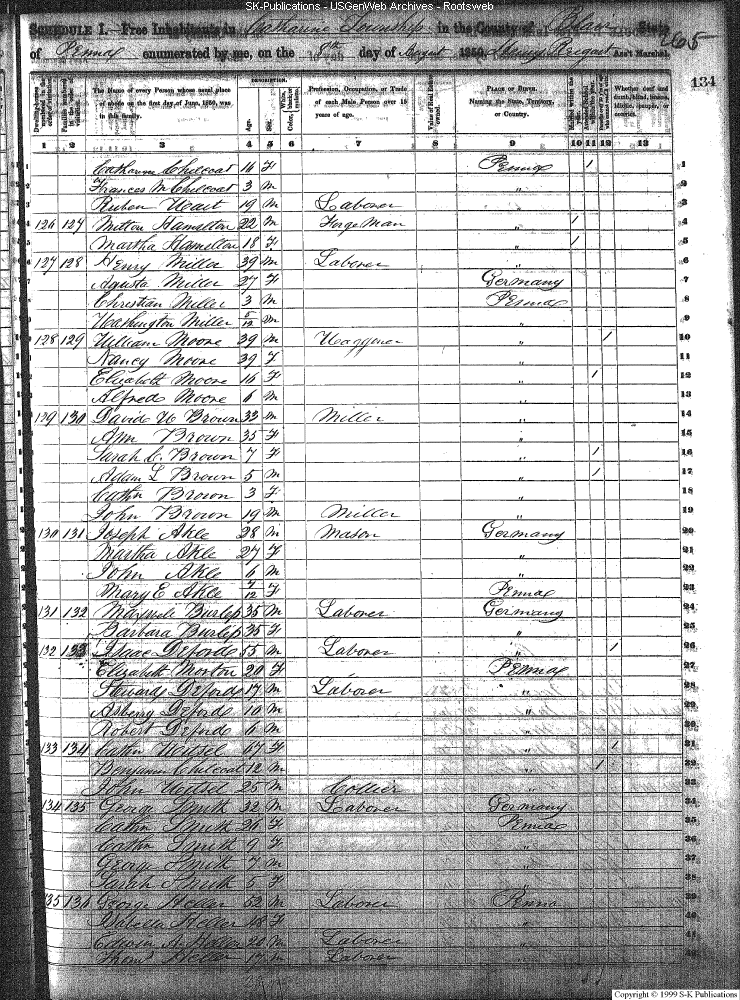 SK-Publications - USGenWeb Archives - Rootsweb
SCHEDULE I. Free Inhabitants in Catharine Township in the County of Blair State
of Penna enumerated by me, on the 8th day of August 1850. Ass't Marshal.
134
Dwelling-houses numbered in the order of visitation. Families numbered in the order of visitation. The Name of every Person whose usual place of abode on the first day of June, 1850, was in this family. DESCRIPTION. Age. Sex. White, black, or mulatto. Color, Profession, Occupation, or Trade of each Male Person over 15 years of age. Value of Real Estate owned. PLACE OF BIRTH. Naming the State, Territory, or Country. Married within the year. Whether deaf and dumb, blind, insane, idiotic, pauper, or convict.
1 2 3 4 5 6 7 8 9 10 11 12 13
1 Catharine Chilcoat 16 F Penna / 1
2 Frances M Chilcoat 3 M " 2
3 Ruben 19 M Laborer " 3
4 126 127 Milton Hamelton 22 M Forge Man " / 4
5 Martha Hamelton 18 F " / 5
6 127 128 Henry Miller 39 M Laborer " 6
7 Agusta Miller 27 F Germany 7
8 Christian Miller 3 M Penna 8
9 Washington Miller 5/12 M " 9
10 128 129 William Moore 39 M Waggoner " / 10
11 Nancy Moore 39 F " 11
12 Elizabeth Moore 16 F " / 12
13 Alfred Moore 6 M " 13
14 129 130 David W Brown 33 M Miller " 14
15 Ann Brown 35 F " 15
16 Sarah C. Brown 7 F " / 16
17 Adam L Brown 5 M " / 17
18 Cathn Brown 3 F " 18
19 John Brown 19 M Miller " 19
20 130 131 Joseph Akle 28 M Mason Germany 20
21 Martha Akle 27 F " 21
22 John Akle 6 M " 22
23 Mary E Akle 7/12 F Penna 23
24 131 132 Burlip 35 M Laborer Germany 24
25 Barbara Burlip 35 F " 25
26 132 133 Isaac Defords 55 M Laborer " / 26
27 Elizabeth Morton 20 F Penna 27
28 Defords 17 M Laborer " 28
29 Asberry Defords 10 M " 29
30 Robert Defords 6 M " 30
31 133 134 Cathn 67 F " / 31
32 Benjamin Chilcoat 12 M " / 32
33 John 25 M Collier " 33
34 134 135 George Smith 32 M Laborer Germany 34
35 Cathn Smith 26 F Penna 35
36 Cathn Smith 9 F " 36
37 George Smith 7 M " 37
38 Sarah Smith 5 F " 38
39 135 136 George Heller 52 M Laborer Penna 39
40 Isabella Heller 48 F " 40
41 Edwin A. Heller 20 M Laborer " 41
42 Thoms Heller 17 M Laborer " 42
Copyright © 1999 S-K Publications